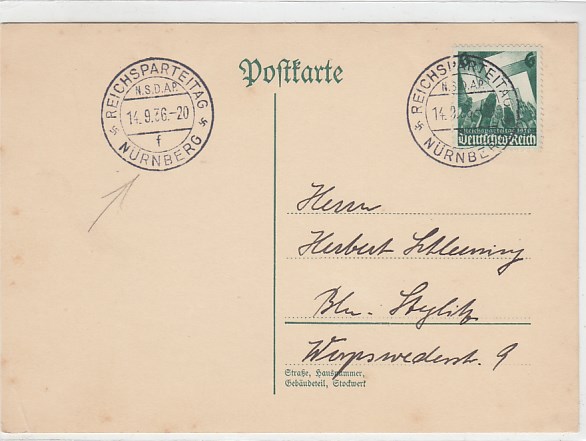 Postkarte
REICHSPARTEITAG
N.S.D.A.P.
14.9.36.-20
f
NÜRNBERG
REICHSPARTEITAG
N.S.D.A.P.
14.9
NÜRNBERG
6
Reichsparteitag 1936
Deutsches Reich
Herrn
Herbert Schlewing
Bln. - Steglitz
Worpswederstr. 9
Straße, Hausnummer,
Gebäudeteil, Stockwerk